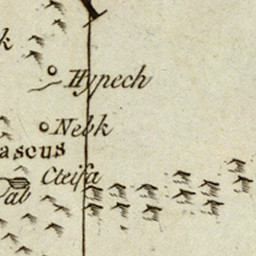 k
Hypech
Nebk
ascus
Cteifa
ab